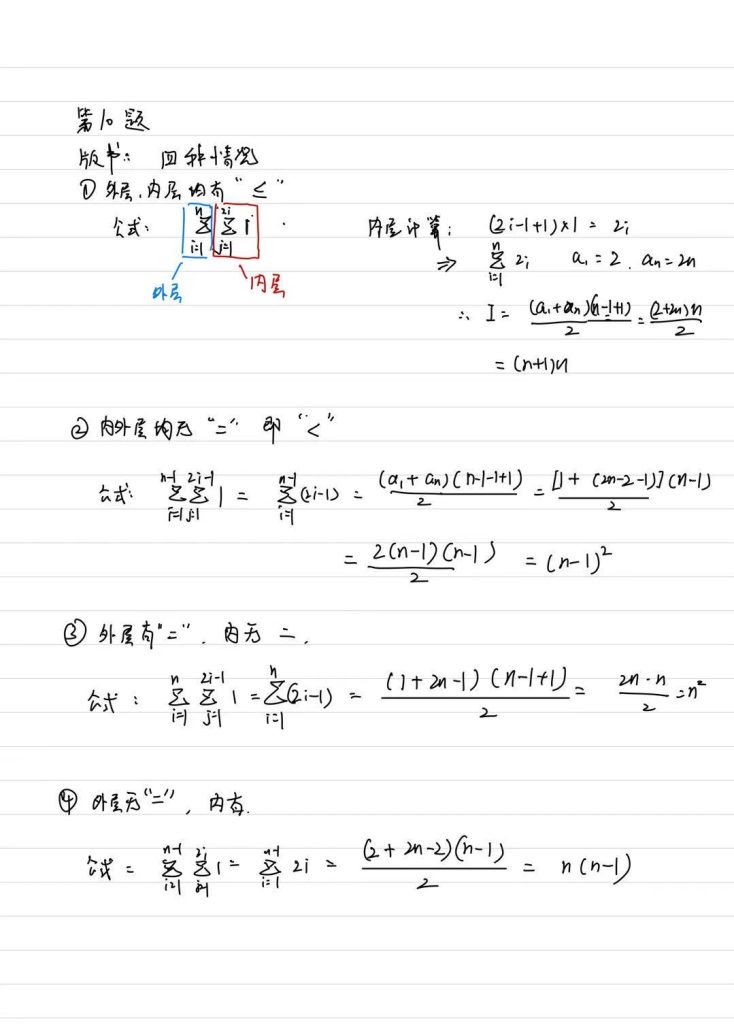 第10题
版书: 四种情况
① 外层、内层均有 "≤"
公式: n∑i=1 2i∑j=1 1
外层 内层
内层计算: (2i-1+1)×1 = 2i
⇒ n∑i=1 2i a₁=2. aₙ=2n
∴ I = (a₁+aₙ)(n-1+1)/2 = (2+2n)n/2
= (n+1)n
② 内外层均无 "=" 即 "<"
公式: n-1∑i=1 2i-1∑j=1 1 = n-1∑i=1 (2i-1) = (a₁+aₙ)(n-1-1+1)/2 = [1+(2n-2-1)](n-1)/2
= 2(n-1)(n-1)/2 = (n-1)²
③ 外层有"=", 内无 =.
公式: n∑i=1 2i-1∑j=1 1 = n∑i=1 (2i-1) = (1+2n-1)(n-1+1)/2 = 2n·n/2 = n²
④ 外层无"=", 内有.
公式 = n-1∑i=1 2i∑j=1 1 = n-1∑i=1 2i = (2+2n-2)(n-1)/2 = n(n-1)